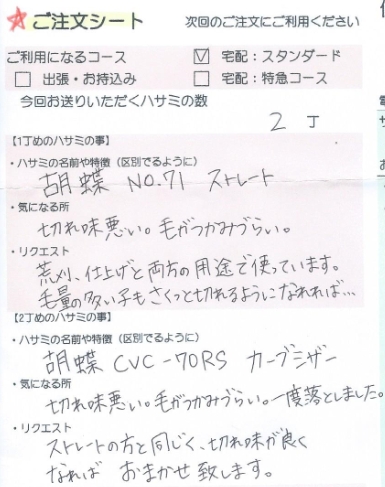 ☆ご注文シート
次回のご注文にご利用ください
ご利用になるコース
☑ 宅配：スタンダード
□ 出張・お持込み
□ 宅配：特急コース
今回お送りいただくハサミの数
2 丁
【1丁めのハサミの事】
・ハサミの名前や特徴（区別でるように）
胡蝶 NO.71 ストレート
・気になる所
切れ味悪い。毛がつかみづらい。
・リクエスト
荒刈、仕上げと両方の用途で使っています。
毛量の多い子もさくっと切れるようになれれば…
【2丁めのハサミの事】
・ハサミの名前や特徴（区別でるように）
胡蝶 CVC-70RS カーブシザー
・気になる所
切れ味悪い。毛がつかみづらい。一度落としました。
・リクエスト
ストレートの方と同じく、切れ味が良く
なれば おまかせ致します。